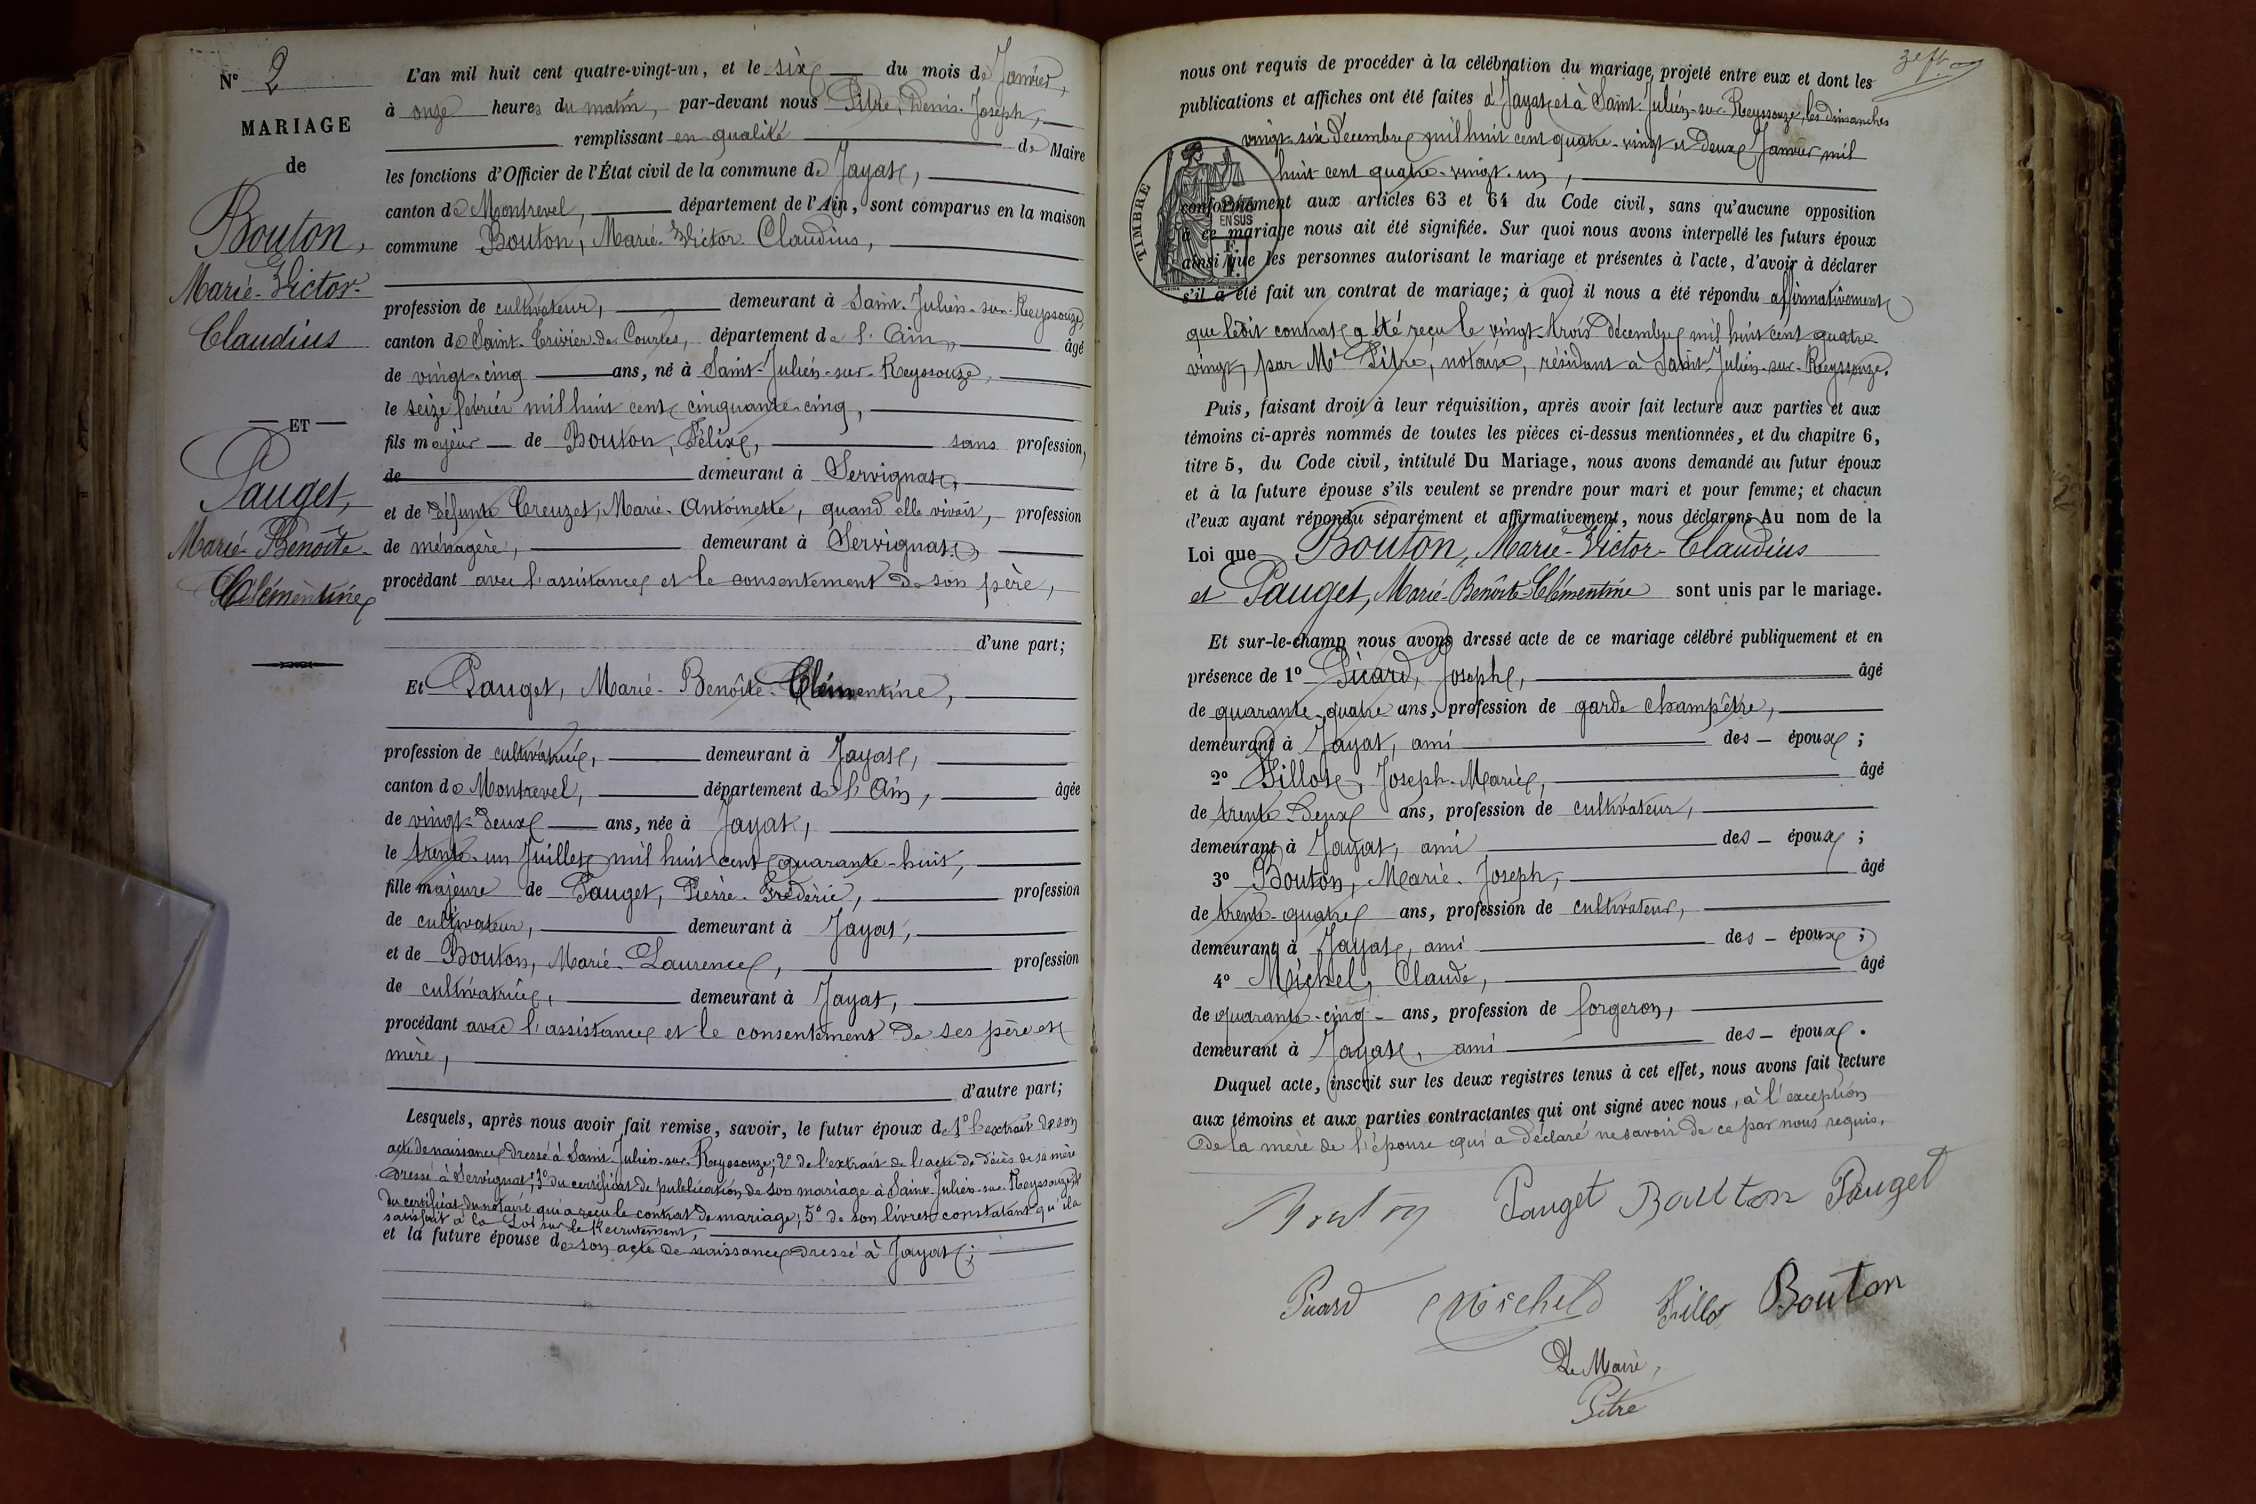 N° 2
MARIAGE
de
Bouton,
Marie-Victor-
Claudius
— ET —
Pauget,
Marie-Benoîte-
Clémentine
L'an mil huit cent quatre-vingt-un, et le six du mois de Janvier,
à onze heures du matin, par-devant nous Pitre, Denis-Joseph,
remplissant en qualité de Maire
les fonctions d'Officier de l'État civil de la commune de Jayat,
canton de Montrevel, département de l'Ain, sont comparus en la maison
commune Bouton, Marie-Victor-Claudius,
profession de cultivateur, demeurant à Saint-Julien-sur-Reyssouze,
canton de Saint-Trivier-de-Courtes, département de l'Ain, âgé
de vingt-cinq ans, né à Saint-Julien-sur-Reyssouze,
le seize février mil huit cent cinquante-cinq,
fils majeur de Bouton, Félix, sans profession,
de demeurant à Servignat,
et de défunte Creuzet, Marie-Antoinette, quand elle vivait, profession
de ménagère, demeurant à Servignat,
procédant avec l'assistance et le consentement de son père,
d'une part;
Et Pauget, Marie-Benoîte-Clémentine,
profession de cultivatrice, demeurant à Jayat,
canton de Montrevel, département de l'Ain, âgée
de vingt-deux ans, née à Jayat,
le trente-un Juillet mil huit cent quarante-huit,
fille majeure de Pauget, Pierre-Frédéric, profession
de cultivateur, demeurant à Jayat,
et de Bouton, Marie-Laurence, profession
de cultivatrice, demeurant à Jayat,
procédant avec l'assistance et le consentement de ses père et
mère,
d'autre part;
Lesquels, après nous avoir fait remise, savoir, le futur époux de 1° l'extrait de son
acte de naissance dressé à Saint-Julien-sur-Reyssouze; 2° de l'extrait de l'acte de décès de sa mère
dressé à Servignat; 3° du certificat de publication de son mariage à Saint-Julien-sur-Reyssouze; 4°
du certificat du notaire qui a reçu le contrat de mariage; 5° de son livret constatant qu'il a
satisfait à la Loi sur le Recrutement,
et la future épouse de son acte de naissance dressé à Jayat;
nous ont requis de procéder à la célébration du mariage projeté entre eux et dont les
publications et affiches ont été faites à Jayat et à Saint-Julien-sur-Reyssouze, les dimanches
vingt-six Décembre mil huit cent quatre-vingt et deux Janvier mil
huit cent quatre-vingt-un,
TIMBRE
EN SUS
conformément aux articles 63 et 64 du Code civil, sans qu'aucune opposition
à ce mariage nous ait été signifiée. Sur quoi nous avons interpellé les futurs époux
ainsi que les personnes autorisant le mariage et présentes à l'acte, d'avoir à déclarer
s'il a été fait un contrat de mariage; à quoi il nous a été répondu affirmativement
que ledit contrat a été reçu le vingt-trois décembre mil huit cent quatre-
vingt, par Me Pitre, notaire, résidant à Saint-Julien-sur-Reyssouze.
Puis, faisant droit à leur réquisition, après avoir fait lecture aux parties et aux
témoins ci-après nommés de toutes les pièces ci-dessus mentionnées, et du chapitre 6,
titre 5, du Code civil, intitulé Du Mariage, nous avons demandé au futur époux
et à la future épouse s'ils veulent se prendre pour mari et pour femme; et chacun
d'eux ayant répondu séparément et affirmativement, nous déclarons Au nom de la
Loi que Bouton, Marie-Victor-Claudius
et Pauget, Marie-Benoîte-Clémentine sont unis par le mariage.
Et sur-le-champ nous avons dressé acte de ce mariage célébré publiquement et en
présence de 1° Picard, Joseph, âgé
de quarante-quatre ans, profession de garde champêtre,
demeurant à Jayat, ami des époux;
2° Tillot, Joseph-Marie, âgé
de trente-deux ans, profession de cultivateur,
demeurant à Jayat, ami des époux;
3° Bouton, Marie-Joseph, âgé
de trente-quatre ans, profession de cultivateur,
demeurant à Jayat, ami des époux;
4° Michel, Claude, âgé
de quarante-cinq ans, profession de forgeron,
demeurant à Jayat, ami des époux.
Duquel acte, inscrit sur les deux registres tenus à cet effet, nous avons fait lecture
aux témoins et aux parties contractantes qui ont signé avec nous, à l'exception
de la mère de l'épouse qui a déclaré ne savoir de ce par nous requis.
Bouton Pauget Boulton Pauget
Picard Michel Bouton
Le Maire,
Pitre